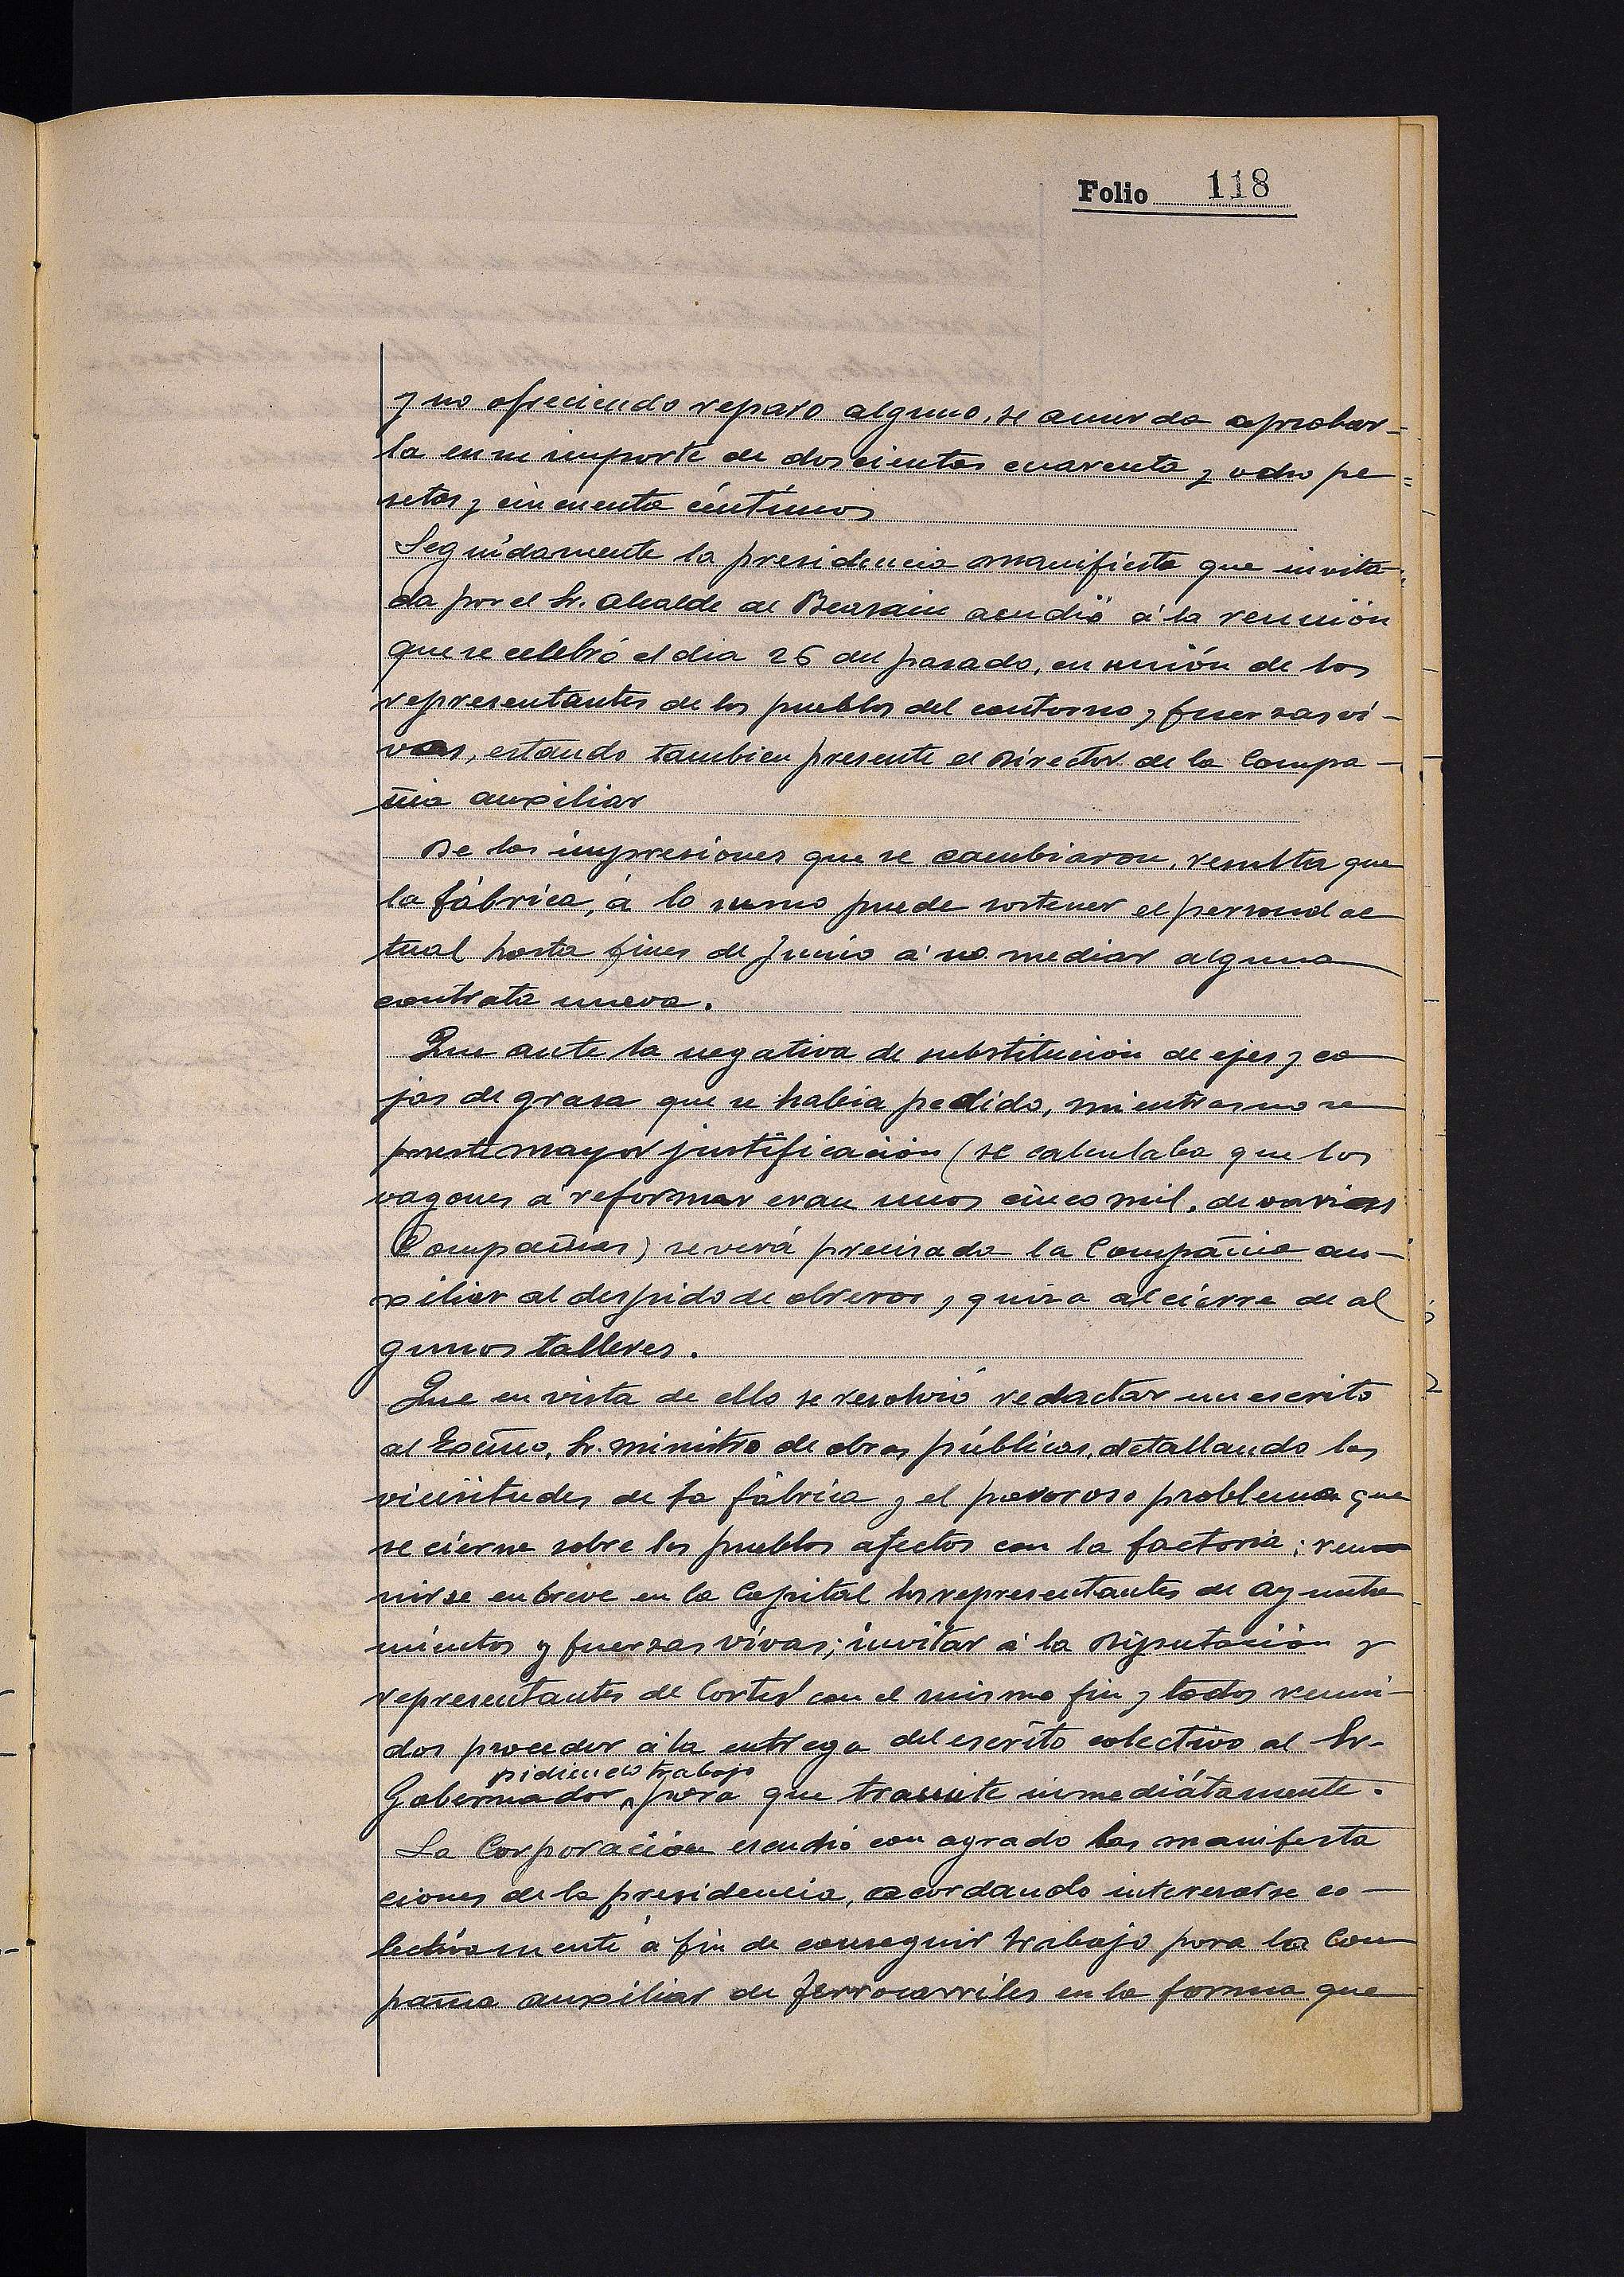 Folio 118
y no ofreciendo reparo alguno, se acuerda aprobar-
la en su importe de doscientas cuarenta y ocho pe=
setas y cincuenta céntimos
Seguidamente la presidencia manifiesta que invita-
da por el Sr. alcalde de Beasain acudió á la reunión
que se celebró el dia 26 del pasado, en unión de los
representantes de los pueblos del contorno y fuerzas vi-
vas, estando tambien presente el Director de la Compa-
ñia auxiliar
De las impresiones que se cambiaron, resulta que
la fábrica, á lo sumo puede sostener el personal ac
tual hasta fines de Junio á no mediar alguna
contrata nueva.
Que ante la negativa de substitución de ejes y ca
jas de grasa que se habia pedido, mientras no se
preste mayor justificación (se calculaba que los
vagones á reformar eran unos cinco mil, de varias
Compañias) se verá precisada la Compañia au-
xiliar al despido de obreros y quiza al cierre de al
gunos talleres.
Que en vista de ello se resolvió redactar un escrito
al Excmo. Sr. ministro de obras públicas, detallando las
vicisitudes de la fábrica y el pavoroso problema que
se cierne sobre los pueblos afectos con la factoria; reu
nirse en breve en la Capital los representantes de ayunta
mientos y fuerzas vivas; invitar á la Diputación y
representantes de Cortes con el mismo fin y todos reuni-
dos proceder á la entrega del escrito colectivo al Sr.
pidiendo trabajo
Gobernador, para que tramite inmediátamente.
La Corporación escuchó con agrado las manifesta
ciones de la presidencia, acordando interesarse co-
lectivamente á fin de conseguir trabajo para la Com
pañia auxiliar de ferrocarriles en la forma que